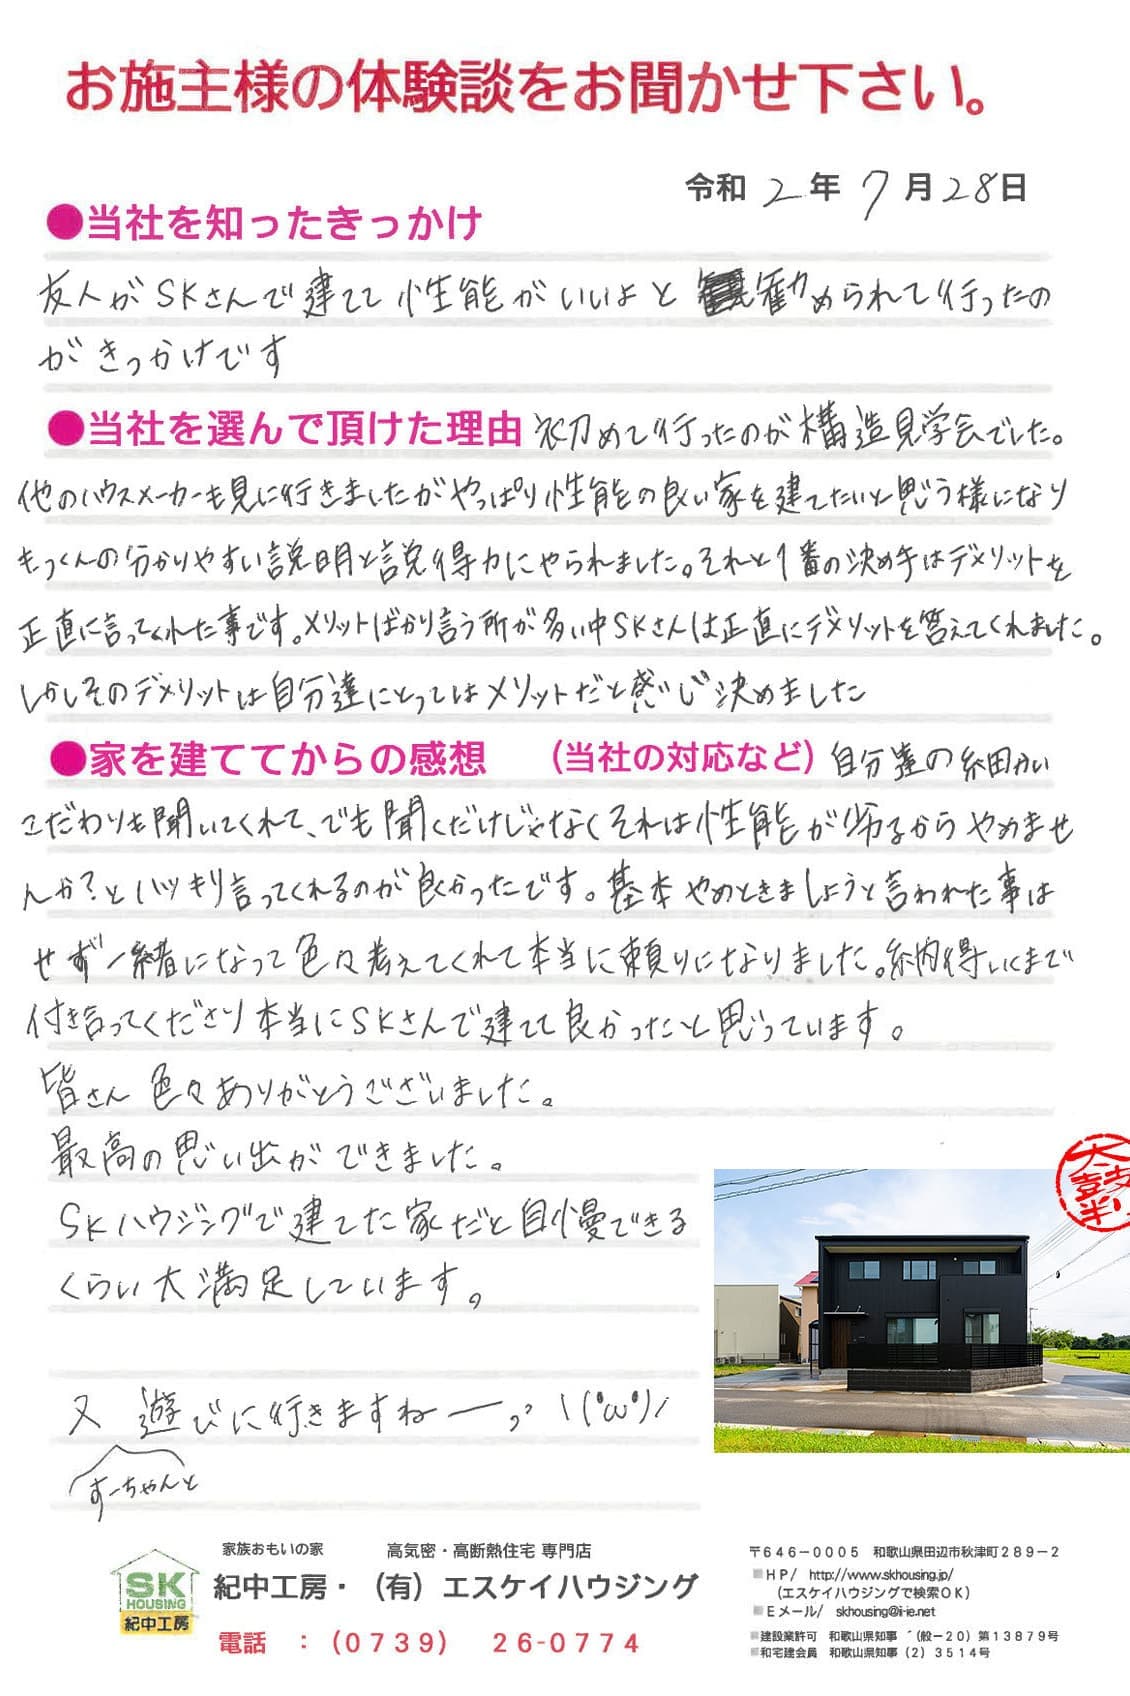 お施主様の体験談をお聞かせ下さい。
令和 2 年 7 月 28 日
●当社を知ったきっかけ
友人がSKさんで建てて性能がいいよと勧められて行ったの
がきっかけです
●当社を選んで頂けた理由 初めて行ったのが構造見学会でした。
他のハウスメーカーも見に行きましたがやっぱり性能の良い家を建てたいと思う様になり
もっくんの分かりやすい説明と説得力にやられました。それと1番の決め手はデメリットを
正直に言ってくれた事です。メリットばかり言う所が多い中SKさんは正直にデメリットを答えてくれました。
しかしそのデメリットは自分達にとってはメリットだと感じ決めました
●家を建ててからの感想 (当社の対応など) 自分達の細かい
こだわりも聞いてくれて、でも聞くだけじゃなくそれは性能が劣るからやめませ
んか?とハッキリ言ってくれるのが良かったです。基本やめときましょうと言われた事は
せず一緒になって色々考えてくれて本当に頼りになりました。納得いくまで
付き合ってくださり本当にSKさんで建てて良かったと思っています。
皆さん 色々ありがとうございました。
最高の思い出ができました。
SKハウジングで建てた家だと自慢できる
くらい大満足しています。
又 遊びに行きますねー っ \(°ω°)/
すーちゃんと
太鼓判
SK
HOUSING
紀中工房
家族おもいの家 高気密・高断熱住宅 専門店
紀中工房・(有)エスケイハウジング
電話 :(0739) 26-0774
〒646-0005 和歌山県田辺市秋津町289-2
■HP/ http://www.skhousing.jp/
(エスケイハウジングで検索OK)
■Eメール/ skhousing@i-ie.net
■建設業許可 和歌山県知事 (般-20)第13879号
■和宅建会員 和歌山県知事(2)3514号